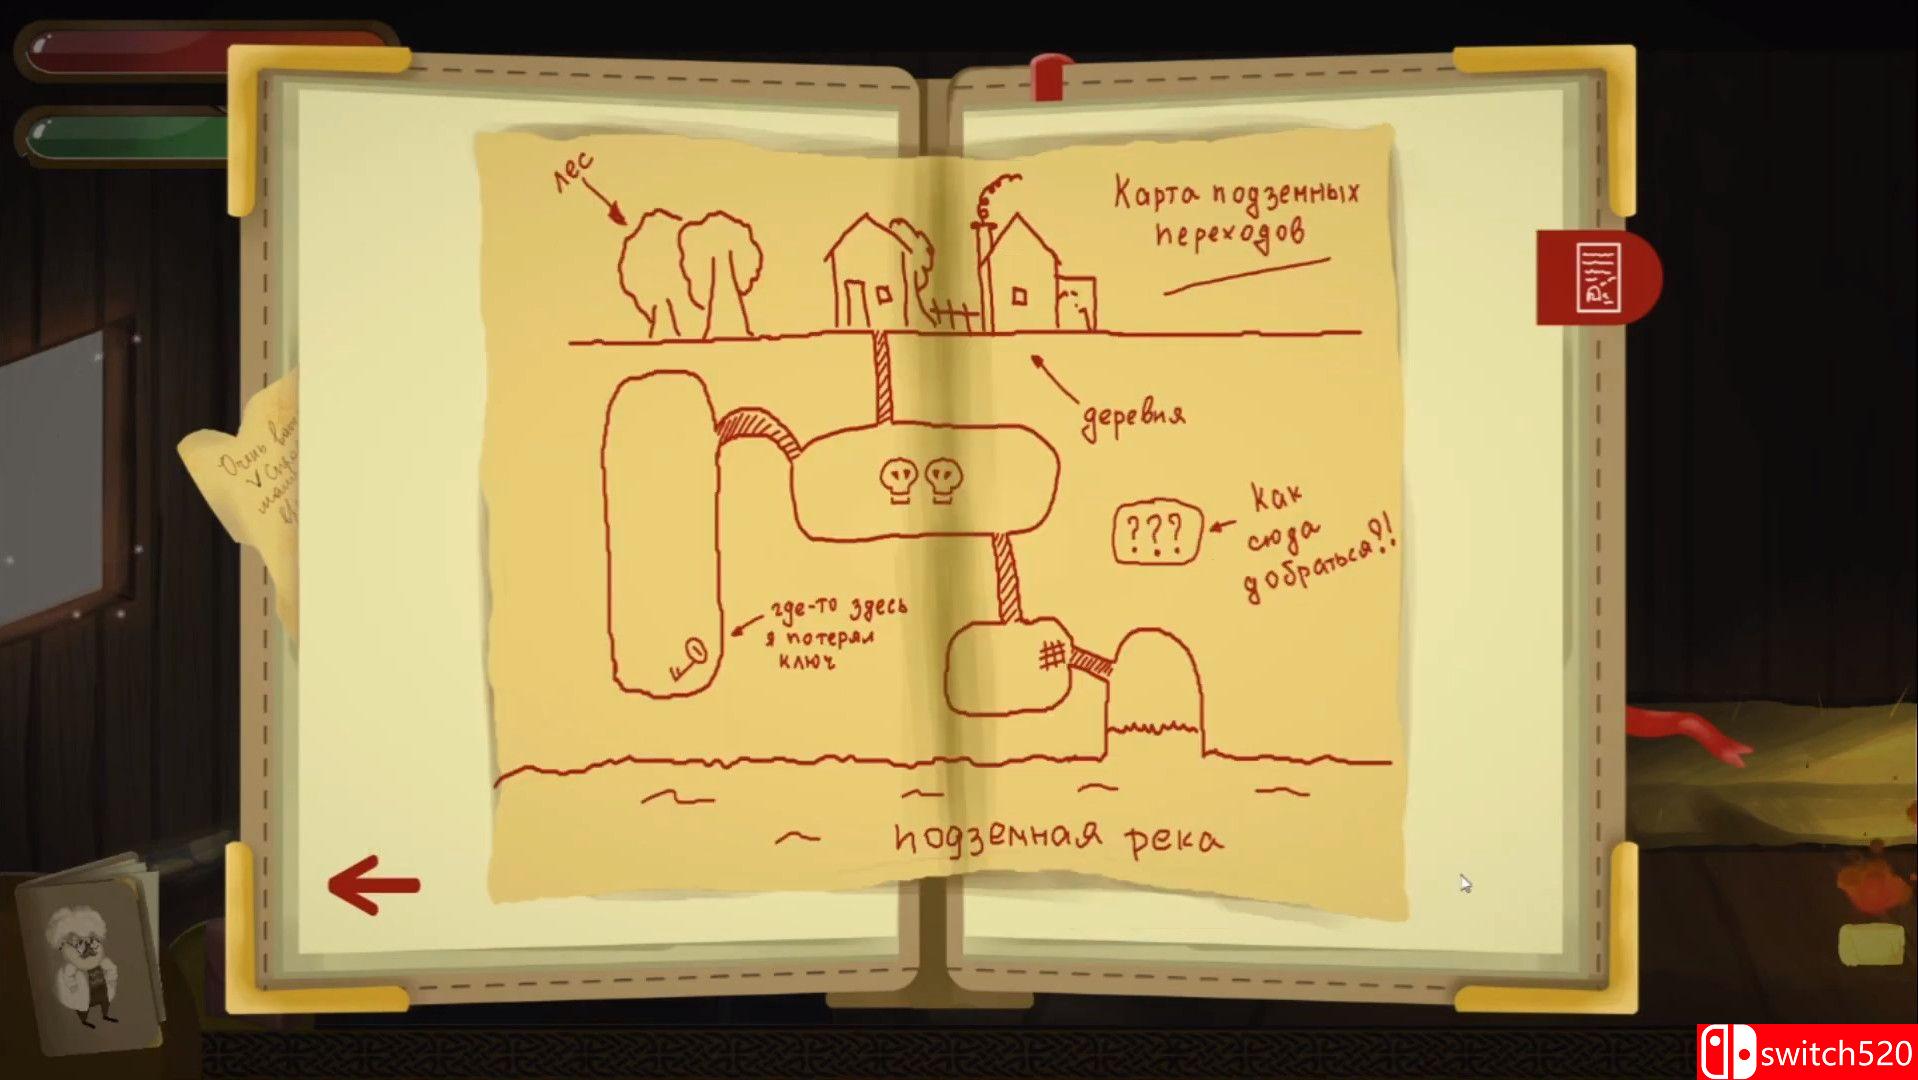 лес
Карта подземных
переходов
деревня
???
Как
сюда
добраться?!
где-то здесь
я потерял
ключ
подземная река
Очень
switch520